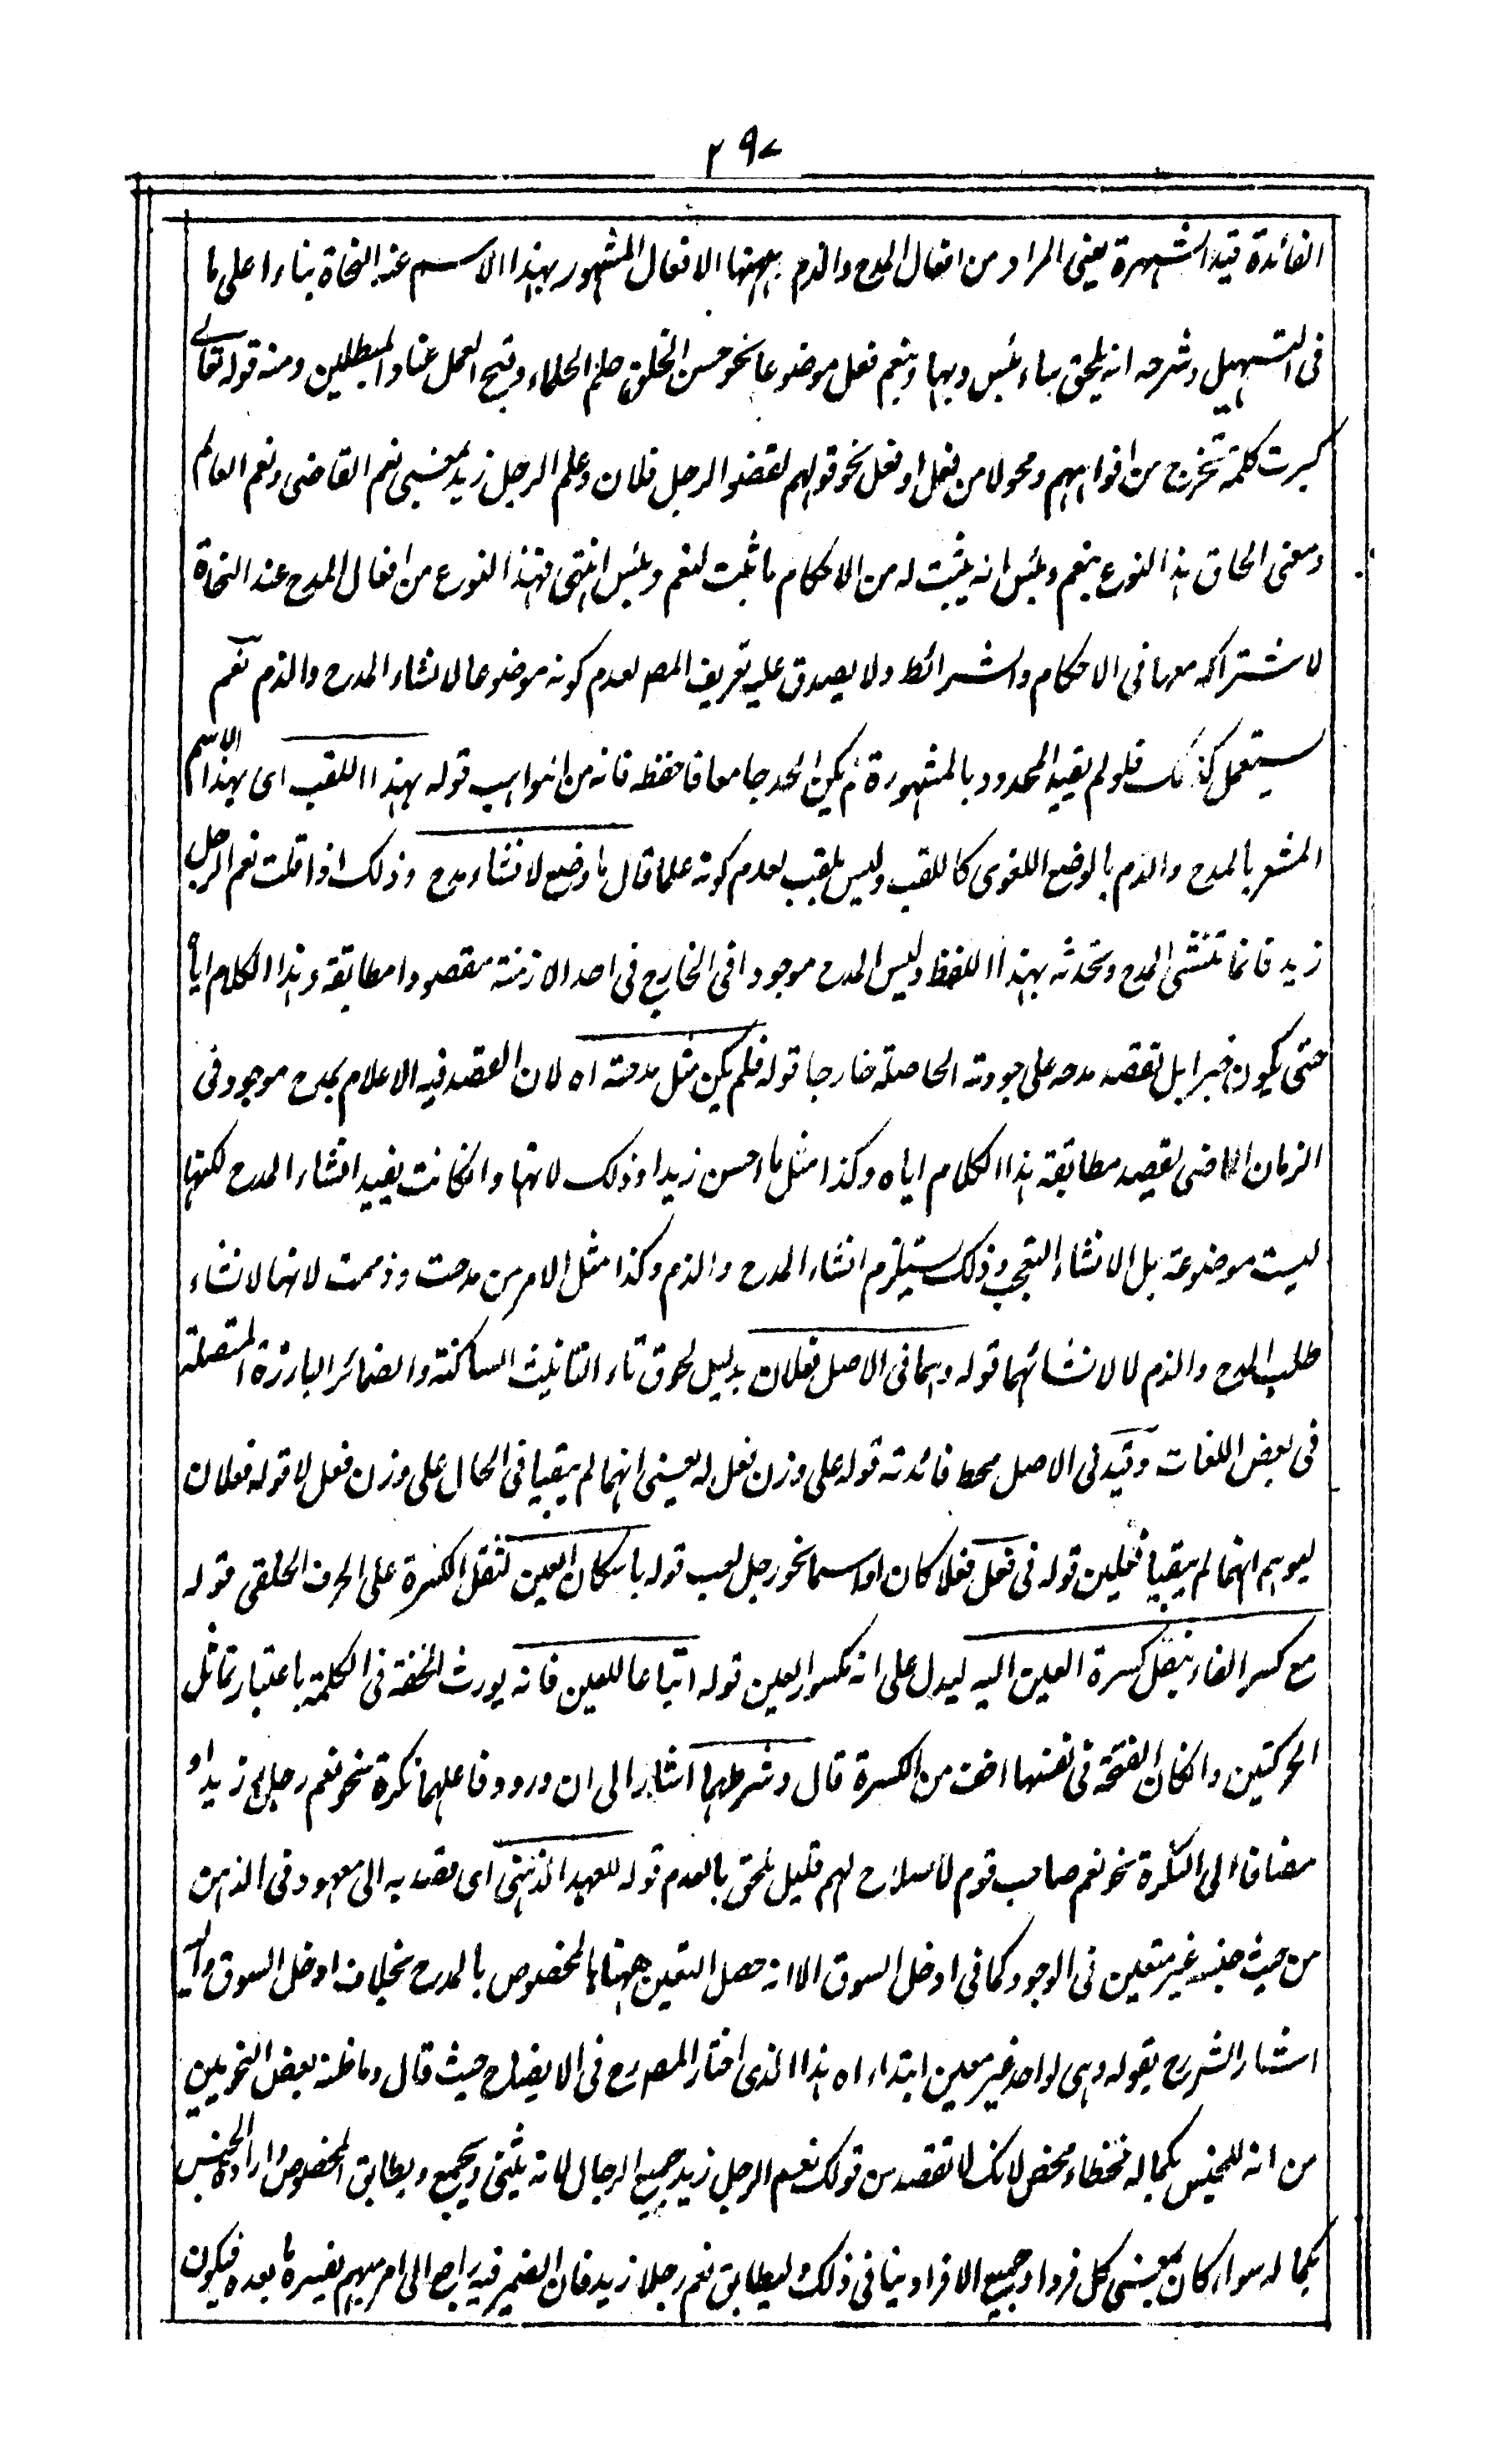 ٢٩٧
الفائدة قيد الشهرة يعنى المراد من افعال المدح والذم ههنا الافعال المشهور بهذا الاسم عند النحاة بناءا على ما
فى التسهيل وشرحه انه يلحق ساء ببئس وبها وبنعم فعل موضوعا نحو حسن الخلق حلم الحلماء وقبح العمل عناد المبطلين ومنه قوله تعالى
كبرت كلمة تخرج من افواههم ومحولا من فعل او فعل نحو قولهم لقضو الرجل فلان وعلم الرجل زيد بمعنى نعم القاضى ونعم العالم
ومعنى الحاق هذا النوع بنعم وبئس انه يثبت له من الاحكام ما ثبت لنعم وبئس انتهى فهذا النوع من افعال المدح عند النحاة
لاشتراكه معها فى الاحكام والشرائط ولا يصدق عليه تعريف المص لعدم كونه موضوعا لانشاء المدح والذم نعم
يستعمل كذلك فلو لم يقيد المحدود بالمشهورة لم يكن الحد جامعا فاحفظه فانه من المواهب قوله بهذا اللقب اى بهذا الاسم
المشعر بالمدح والذم بالوضع اللغوى كاللقب وليس بلقب لعدم كونه علما قال ما وضع لانشاء مدح وذلك اذا قلت نعم الرجل
زيد فانما تنشئ المدح وتحدثه بهذا اللفظ وليس المدح موجودا فى الخارج فى احد الازمنة مقصودا مطابقة هذا الكلام اياه
حتى يكون خبرا بل تقصد مدحه على جودته الحاصلة خارجا قوله فلم يكن مثل مدحته اه لان القصد فيه الاعلام بمدح موجود فى
الزمان الماضى يقصد مطابقة هذا الكلام اياه وكذا مثل ما احسن زيدا وذلك لانها وانكانت يفيد انشاء المدح لكنها
ليست موضوعة بل الانشاء التعجب وذلك يستلزم انشاء المدح والذم وكذا مثل الامر من مدحت وذممت لانها لانشاء
طلب المدح والذم لا لانشائهما قوله وهما فى الاصل فعلان بدليل لحوق تاء التانيث الساكنة والضمائر البارزة المتصلة
فى بعض اللغات وقيد فى الاصل محط فائدته قوله على وزن فعل له يعنى انهما لم يبقيا فى الحال على وزن فعل لا قوله فعلان
ليوهم انهما لم يبقيا فعلين قوله فى فعل فعلا كان او اسما نحو رجل لعب قوله باسكان العين لثقل الكسرة على الحرف الحلقى قوله
مع كسر الفاء بنقل كسرة العين اليه ليدل على انه مكسور العين قوله اتباعا للعين فانه يورث الخفة فى الكلمة باعتبار تماثل
الحركتين وانكان الفتحة فى نفسها اخف من الكسرة قال وشرطهما اشار الى ان ورود فاعلهما نكرة نحو نعم رجل زيد او
مضافا الى النكرة نحو نعم صاحب قوم لا سلاح لهم قليل يلحق بالعدم قوله للعهد الذهنى اى يقصد به الى معهود فى الذهن
من حيث جنسه غير متعين فى الوجود كما فى ادخل السوق الا انه حصل التعين ههنا بالمخصوص بالمدح بخلاف ادخل السوق واليه
اشار الشرح بقوله وهى لواحد غير معين ابتداء اه هذا الذى اختار المص رح فى الايضاح حيث قال وما ظنه بعض النحويين
من انه للجنس بكماله فخطاء محض لانك لا تقصد من قولك نعم الرجل زيد جميع الرجال لانه يثنى ويجمع ويطابق المخصوص وارادة الجنس
بكماله سواء كان بمعنى كل فرد او جميع الافراد ينافى ذلك وليطابق نعم رجلا زيد فان الضمير فيه راجع الى امر مبهم يفسره ما بعده فيكون